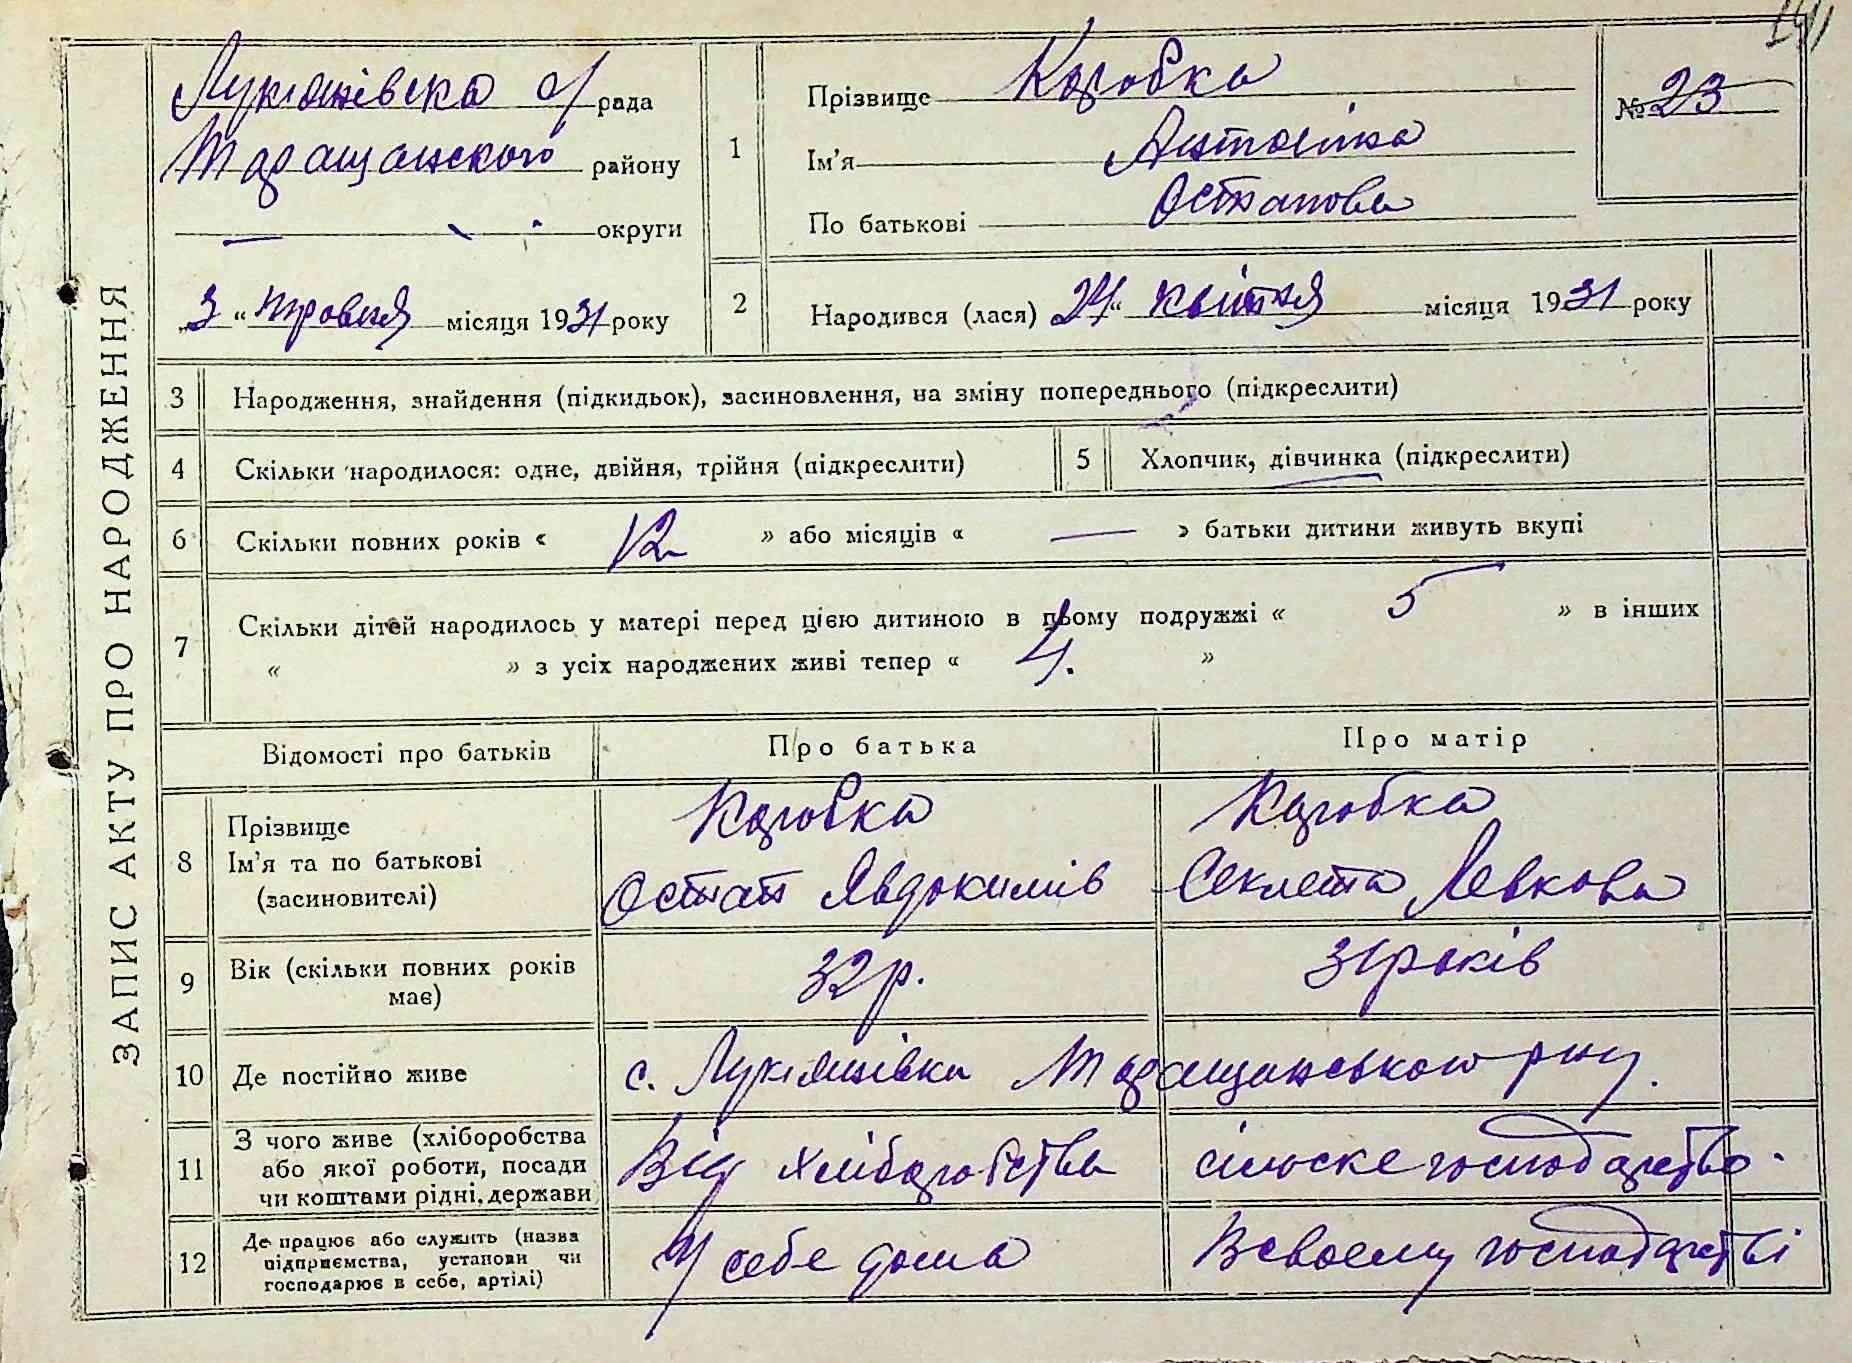 ЗАПИС АКТУ ПРО НАРОДЖЕННЯ
Лукянівска с/рада
Таращанского району
— округи
„3" травня місяця 1931 року
1
Прізвище Коробка
Ім'я Антоніна
По батькові Остапова
№ 23
2
Народився (лася) 24 " квітня місяця 1931 року
3 Народження, знайдення (підкидьок), засиновлення, на зміну попереднього (підкреслити)
4 Скільки народилося: одне, двійня, трійня (підкреслити)
5 Хлопчик, дівчинка (підкреслити)
6 Скільки повних років « 12 » або місяців « — » батьки дитини живуть вкупі
7 Скільки дітей народилось у матері перед цією дитиною в цьому подружжі « 5 » в інших
« » з усіх народжених живі тепер « 4. »
Відомості про батьків Про батька Про матір
8
Прізвище
Ім'я та по батькові
(засиновителі)
Коробка
Остап Явдокимів
Коробка
Секлета Левкова
9
Вік (скільки повних років
має)
32 р.
31 років
10 Де постійно живе с. Лукянівка Таращанського р-ну.
11
З чого живе (хліборобства
або якої роботи, посади
чи коштами рідні, держави
Від хліборобства
сільске господарство.
12
Де працює або служить (назва
підприємства, установи чи
господарює в себе, артілі)
У себе дома
В своему господарстві